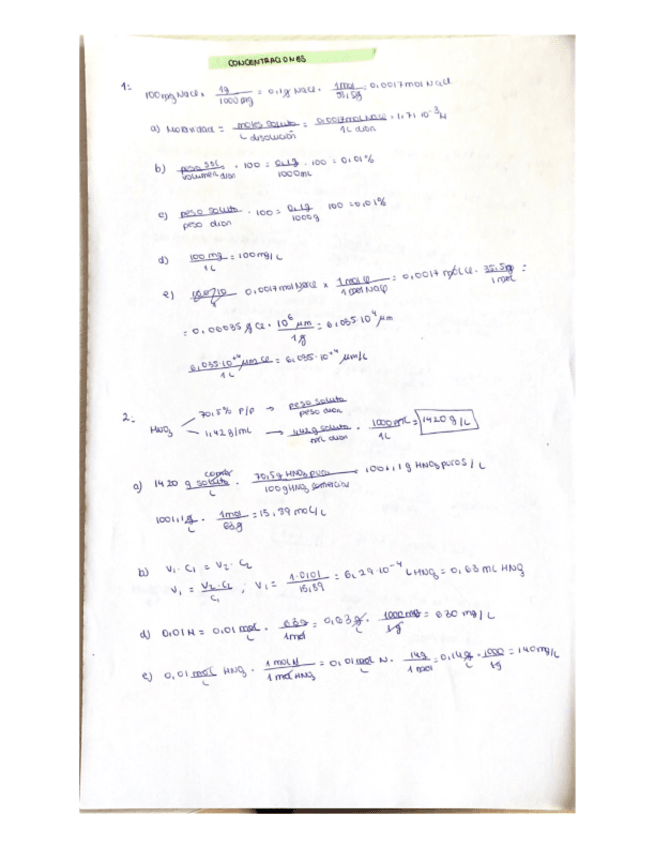 CONCENTRACIONES
1: 100mg NaCl × 1g / 1000mg = 0,1g NaCl · 1mol / 58,5g = 0,0017mol NaCl
a) Molaridad = moles soluto / L disolución = 0,0017mol NaCl / 1L dson = 1,71·10⁻³M
b) peso sol. / volumen dson · 100 = 0,1g / 1000mL · 100 = 0,01%
c) peso soluto / peso dson · 100 = 0,1g / 1000g 100 = 0,01%
d) 100 mg / 1L = 100mg/L
e) 0,0017mol NaCl × 1mol Cl / 1mol NaCl = 0,0017 mol Cl · 35,5g / 1mol =
= 0,06035 g Cl · 10⁶ μm / 1g = 6,035·10⁴ μm
6,035·10⁺⁴ μm Cl / 1L = 6,035·10⁺⁴ μm/L
2: HNO₃
70,5% P/P → peso soluto / peso dson
1,42g/mL → 1,42g soluto / mL dson · 1000mL / 1L = 1420 g/L
a) 1420 g soluto / L · 70,5g HNO₃ puro / 100g HNO₃ comercial = 1001,1 g HNO₃ puros / L
1001,1g / L · 1mol / 63g = 15,89 mol/L
b) V₁· C₁ = V₂· C₂
V₁ = V₂·C₂ / C₁ ; V₁ = 1·0,01 / 15,89 = 6,29·10⁻⁴ L HNO₃ = 0,63 mL HNO₃
d) 0,01N = 0,01 mol / L · 63g / 1mol = 0,63 g / L · 1000mg / 1g = 630 mg/L
e) 0,01 mol / L HNO₃ · 1 mol N / 1 mol HNO₃ = 0,01 mol / L N · 14g / 1 mol = 0,14g / L · 1000 / 1g = 140mg/L